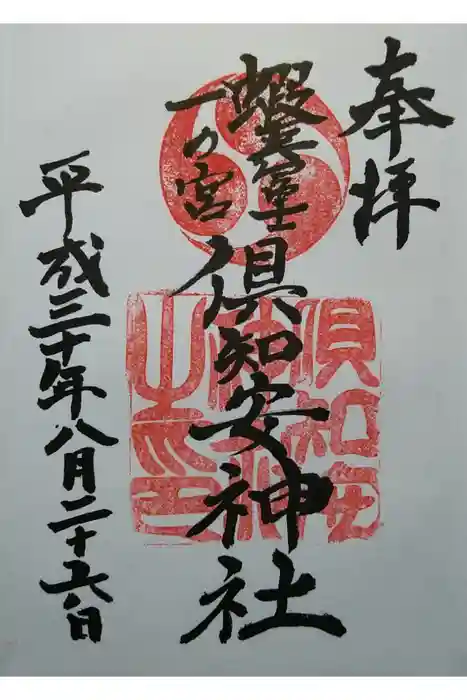 奉拝
蝦夷富士
一の宮
倶知安神社
平成三十年八月二十六日
倶知安